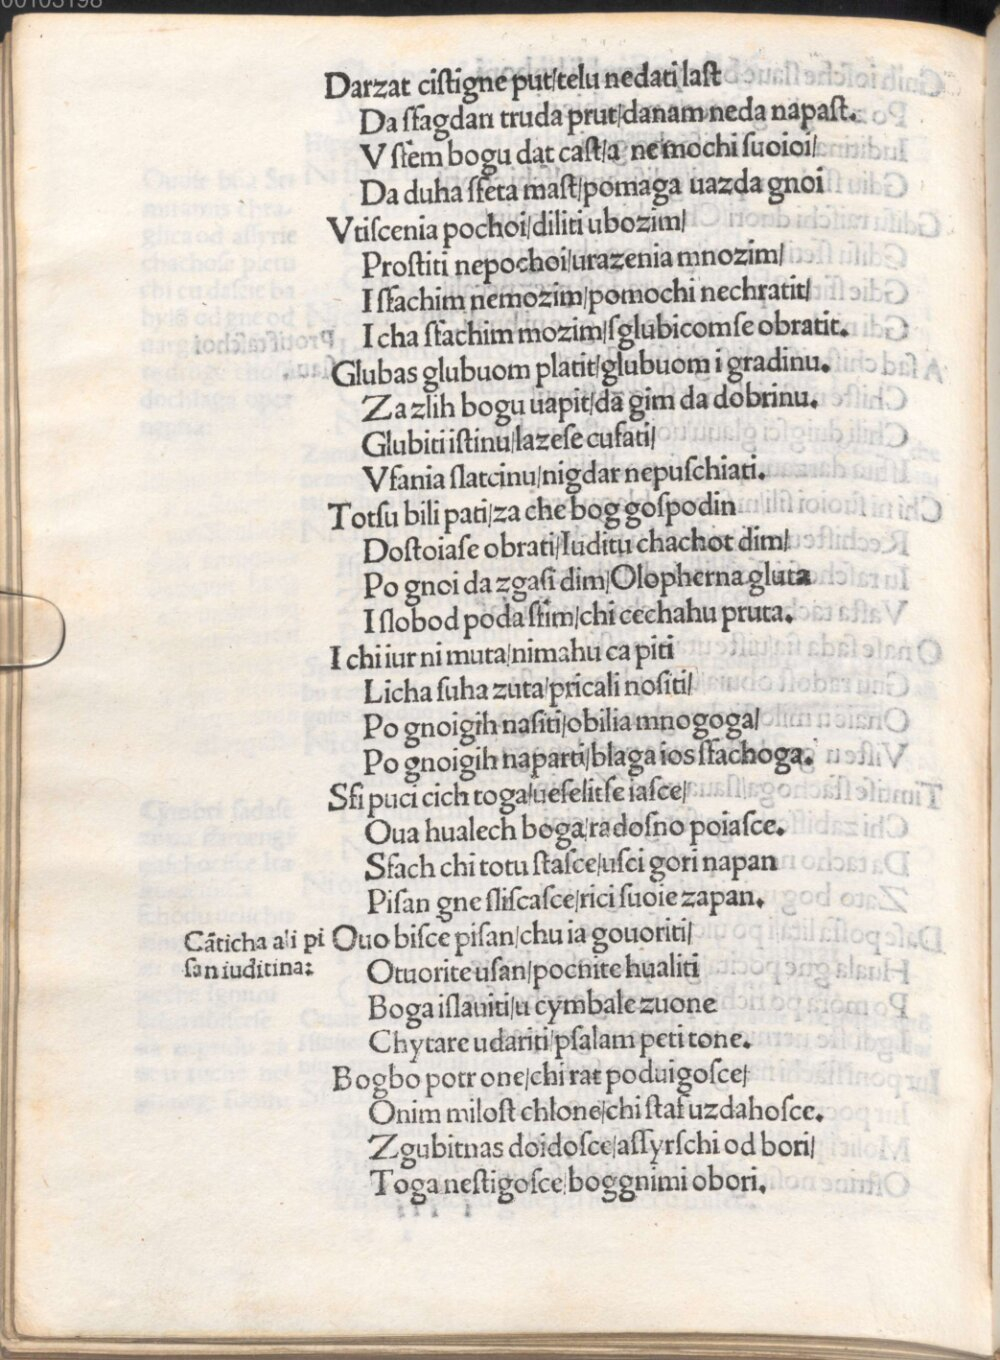 00103198
Darzat cistigne put/telu nedati last
Da sfagdan truda prut/danam neda napast.
V sfem bogu dat cast/a ne mochi suoioi/
Da duha sfeta mast/pomaga uazda gnoi
Vtiscenia pochoi/diliti ubozim/
Prostiti nepochoi/urazenia mnozim/
I sfachim nemozim/pomochi nechratit/
I cha sfachim mozim/sglubicomse obratit.
Glubas glubuom platit/glubuom i gradinu.
Za zlih bogu uapit/da gim da dobrinu.
Glubiti istinu/lazese cufati/
Vfania slatcinu/nigdar nepuschiati.
Totsu bili pati/za che bog gospodin
Dostoiase obrati/Iuditu chachot dim/
Po gnoi da zgasi dim/Olopherna gluta
I slobod poda sfim/chi cechahu pruta.
I chi iur ni muta/nimahu ca piti
Licha suha zuta/pricali nositi/
Po gnoigih nasiti/obilia mnogoga/
Po gnoigih naparti/blaga ios sfachoga.
Sfi puci cich toga/ueselitse iasce/
Oua hualech boga/radosno poiasce.
Sfach chi totu stasce/usci gori napan
Pisan gne sliscasce/rici suoie zapan.
Cãticha ali pi Ouo bisce pisan/chu ia gouoriti/
san iuditina: Otuorite usan/pocnite hualiti
Boga islauiti/u cymbale zuone
Chytare udariti/psalam peti tone.
Bogbo potrone/chi rat poduigosce/
Onim milost chlone/chi staf uzdahosce.
Zgubitnas doidosce/assyrschi od bori/
Toga nestigosce/boggnimi obori.